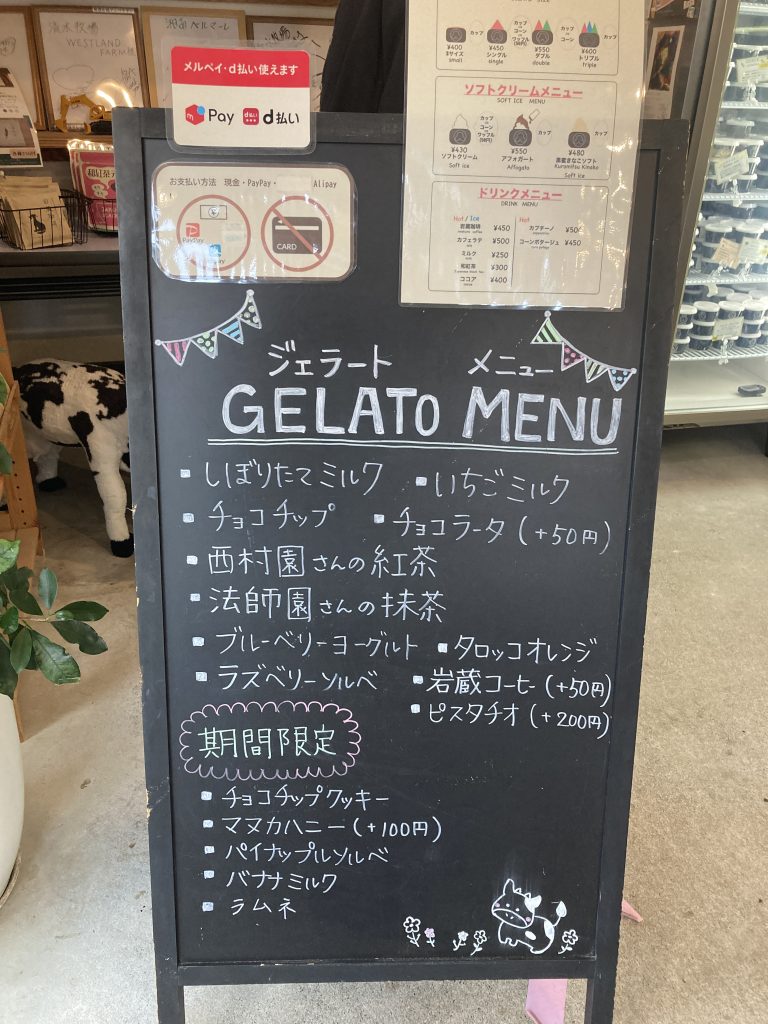 清水牧場
WESTLAND
FARM
湘南ベルマーレ
メルペイ・d払い使えます
Pay d払い
お支払い方法 現金・PayPay・ Alipay
PayPay
CARD
カップ
カップ or コーン or ワッフル(50円)
カップ
カップ
¥400 ¥450 ¥550 ¥600
Sサイズ シングル ダブル トリプル
small single double triple
ソフトクリームメニュー
SOFT ICE MENU
カップ or コーン or ワッフル(50円)
カップ
カップ
¥430 ¥550 ¥480
ソフトクリーム アフォガート 黒蜜きなこソフト
Soft ice Affogato Kuromitsu Kinako
Soft ice
ドリンクメニュー
DRINK MENU
Hot / Ice Hot
岩蔵珈琲 ¥450 カプチーノ ¥500
カフェラテ ¥500 コーンポタージュ ¥450
ミルク ¥250
和紅茶 ¥300
ココア ¥400
ジェラート メニュー
GELATO MENU
しぼりたてミルク いちごミルク
チョコチップ チョコラータ (+50円)
西村園さんの紅茶
法師園さんの抹茶
ブルーベリーヨーグルト タロッコオレンジ
ラズベリーソルベ 岩蔵コーヒー (+50円)
ピスタチオ (+200円)
期間限定
チョコチップクッキー
マヌカハニー (+100円)
パイナップルソルベ
バナナミルク
ラムネ